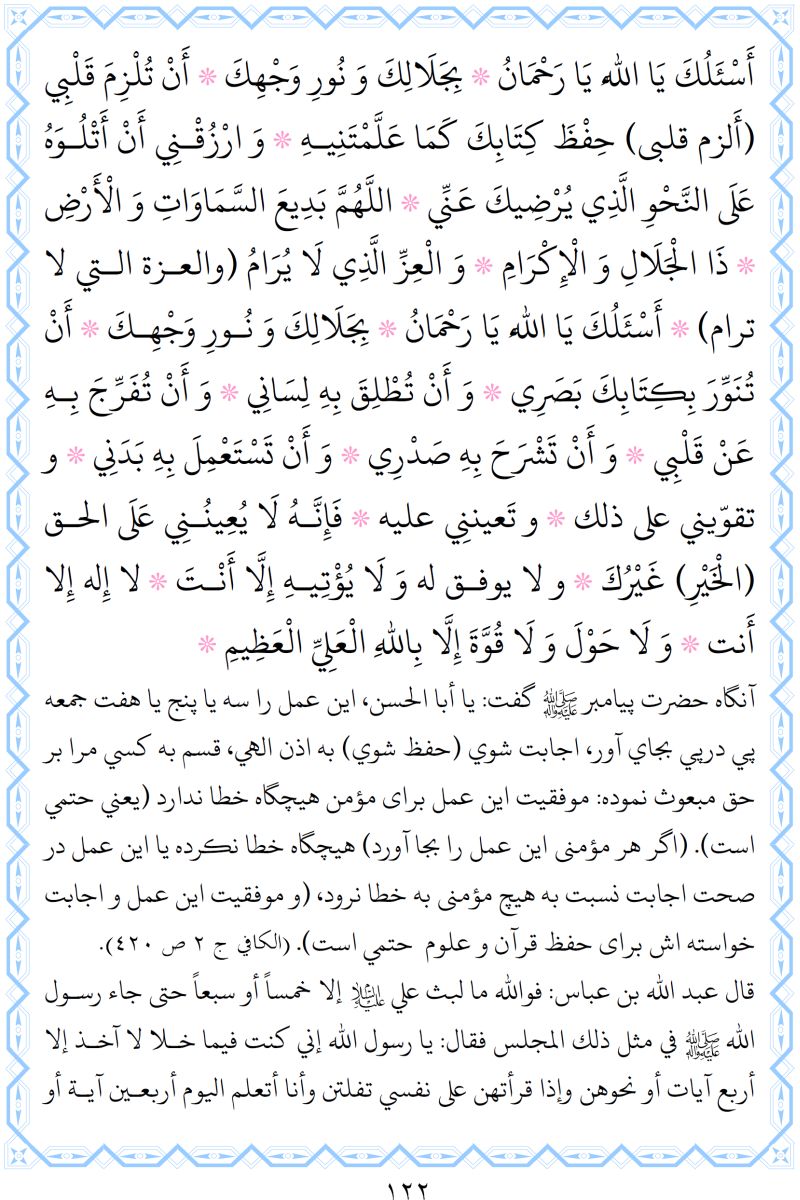 أَسْئَلُكَ يَا اللهُ يَا رَحْمَانُ ❊ بِجَلَالِكَ وَ نُورِ وَجْهِكَ ❊ أَنْ تُلْزِمَ قَلْبِي
(أَلزم قلبی) حِفْظَ كِتَابِكَ كَمَا عَلَّمْتَنِيـهِ ❊ وَ ارْزُقْـنِي أَنْ أَتْلُـوَهُ
عَلَى النَّحْوِ الَّذِي يُرْضِيكَ عَنِّي ❊ اللَّهُمَّ بَدِيعَ السَّمَاوَاتِ وَ الْأَرْضِ
❊ ذَا الْجَلَالِ وَ الْإِكْرَامِ ❊ وَ الْعِزِّ الَّذِي لَا يُرَامُ (والعـزة الـتي لا
ترام) ❊ أَسْئَلُكَ يَا اللهُ يَا رَحْمَانُ ❊ بِجَلَالِكَ وَ نُـورِ وَجْهِـكَ ❊ أَنْ
تُنَوِّرَ بِكِتَابِكَ بَصَرِي ❊ وَ أَنْ تُطْلِقَ بِهِ لِسَانِي ❊ وَ أَنْ تُفَرِّجَ بِـهِ
عَنْ قَلْبِي ❊ وَ أَنْ تَشْرَحَ بِهِ صَدْرِي ❊ وَ أَنْ تَسْتَعْمِلَ بِهِ بَدَنِي ❊ و
تقوّيني على ذلك ❊ و تَعينني عليه ❊ فَإِنَّـهُ لَا يُعِينُـنِي عَلَى الحـق
(الْخَيْرِ) غَيْرُكَ ❊ و لا يوفـق له وَ لَا يُؤْتِيـهِ إِلَّا أَنْـتَ ❊ لا إِله إِلا
أَنت ❊ وَ لَا حَوْلَ وَ لَا قُوَّةَ إِلَّا بِاللهِ الْعَلِيِّ الْعَظِيمِ ❊
آنگاه حضرت پيامبر ﷺ گفت: يا أبا الحسن، اين عمل را سه يا پنج يا هفت جمعه
پي درپي بجاي آور، اجابت شوي (حفظ شوي) به اذن الهي، قسم به كسي مرا بر
حق مبعوث نموده: موفقيت اين عمل برای مؤمن هيچگاه خطا ندارد (يعني حتمي
است). (اگر هر مؤمنی اين عمل را بجا آورد) هيچگاه خطا نکرده يا اين عمل در
صحت اجابت نسبت به هيچ مؤمنی به خطا نرود، (و موفقيت اين عمل و اجابت
خواسته اش برای حفظ قرآن و علوم حتمي است). (الكافي ج ٢ ص ٤٢٠).
قال عبد الله بن عباس: فوالله ما لبث علي عليه السلام إلا خمساً أو سبعاً حتى جاء رسـول
الله ﷺ في مثل ذلك المجلس فقال: يا رسول الله إني كنت فيما خـلا لا آخـذ إلا
أربع آيات أو نحوهن وإذا قرأتهن على نفسي تفلتن وأنا أتعلم اليوم أربعـين آيـة أو
١٢٢